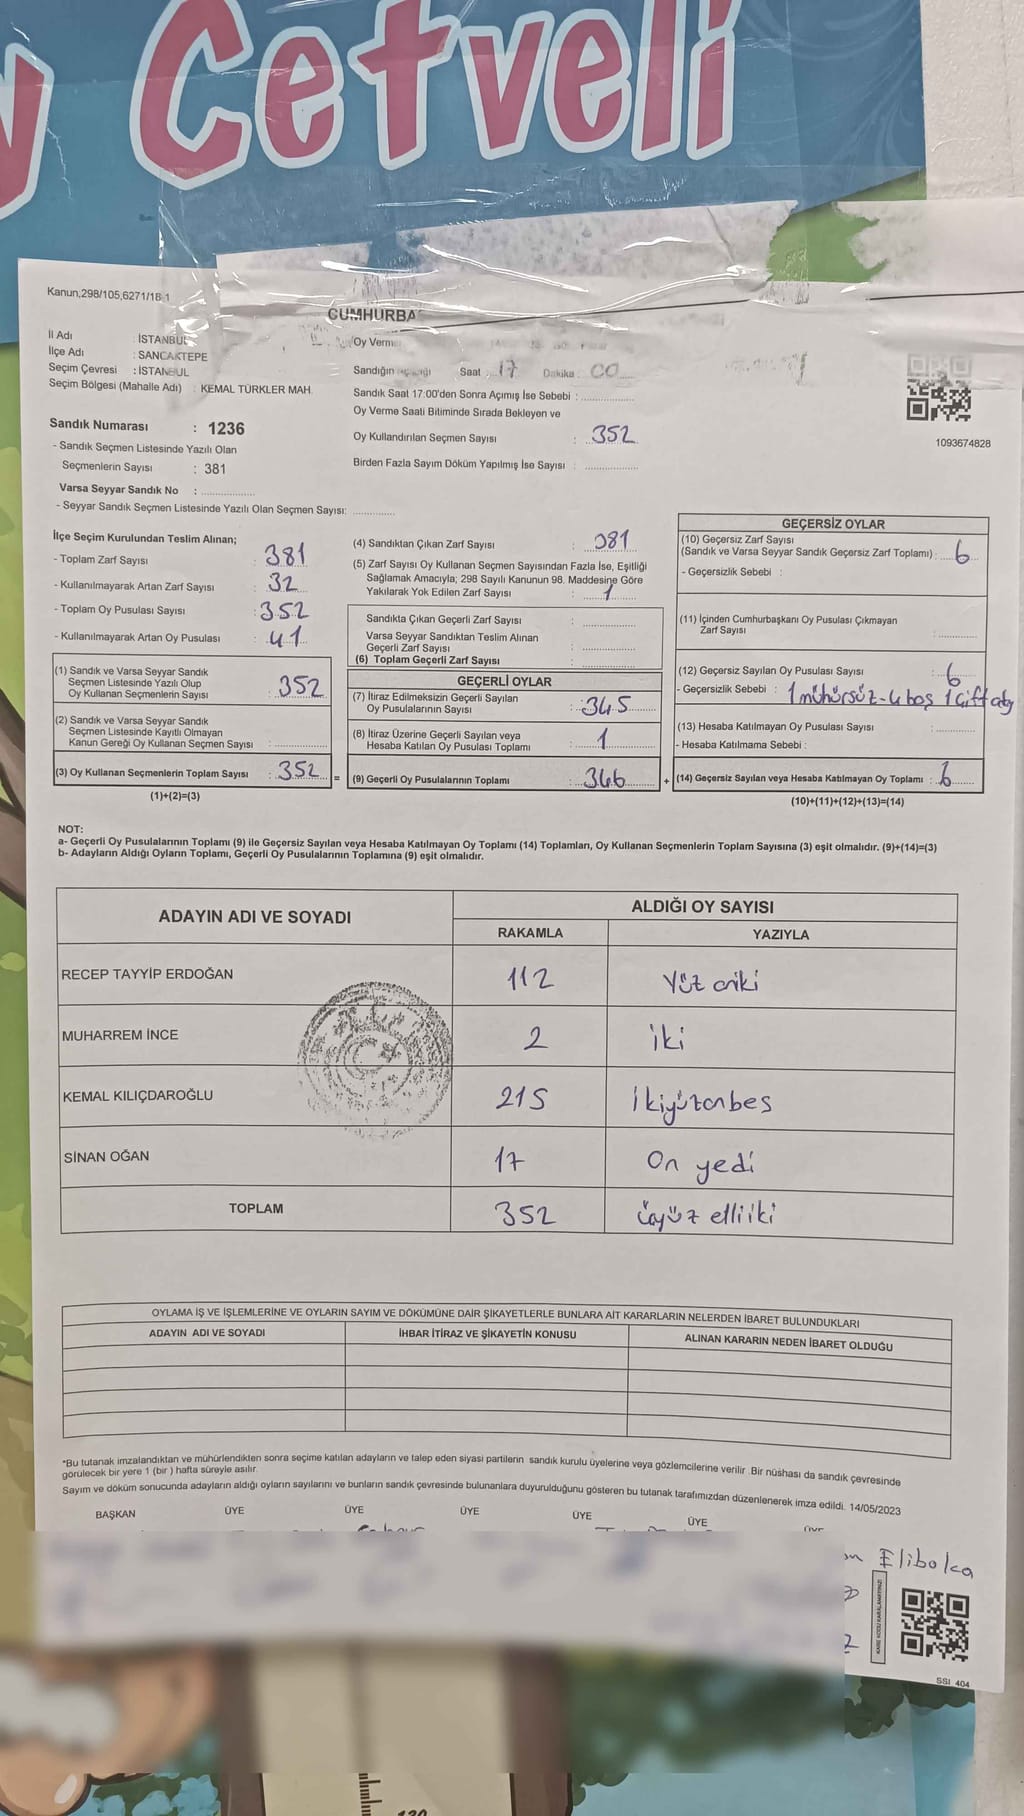 Cetveli
Kanun,298/105,6271/18-1
CUMHURBA
İl Adı : İSTANBUL
İlçe Adı : SANCAKTEPE
Seçim Çevresi : İSTANBUL
Seçim Bölgesi (Mahalle Adı) : KEMAL TÜRKLER MAH.
Sandık Numarası : 1236
- Sandık Seçmen Listesinde Yazılı Olan
Seçmenlerin Sayısı : 381
Varsa Seyyar Sandık No :
- Seyyar Sandık Seçmen Listesinde Yazılı Olan Seçmen Sayısı:
Oy Verme
Sandığın Saat 17 Dakika : 00
Sandık Saat 17:00'den Sonra Açımış İse Sebebi :
Oy Verme Saati Bitiminde Sırada Bekleyen ve
Oy Kullandırılan Seçmen Sayısı : 352
Birden Fazla Sayım Döküm Yapılmış İse Sayısı :
1093674828
İlçe Seçim Kurulundan Teslim Alınan;
- Toplam Zarf Sayısı : 381
- Kullanılmayarak Artan Zarf Sayısı : 32
- Toplam Oy Pusulası Sayısı : 352
- Kullanılmayarak Artan Oy Pusulası : 41
(1) Sandık ve Varsa Seyyar Sandık
Seçmen Listesinde Yazılı Olup
Oy Kullanan Seçmenlerin Sayısı : 352
(2) Sandık ve Varsa Seyyar Sandık
Seçmen Listesinde Kayıtlı Olmayan
Kanun Gereği Oy Kullanan Seçmen Sayısı :
(3) Oy Kullanan Seçmenlerin Toplam Sayısı : 352 =
(1)+(2)=(3)
(4) Sandıktan Çıkan Zarf Sayısı : 381
(5) Zarf Sayısı Oy Kullanan Seçmen Sayısından Fazla İse, Eşitliği
Sağlamak Amacıyla; 298 Sayılı Kanunun 98. Maddesine Göre
Yakılarak Yok Edilen Zarf Sayısı : 1
Sandıkta Çıkan Geçerli Zarf Sayısı :
Varsa Seyyar Sandıktan Teslim Alınan
Geçerli Zarf Sayısı :
(6) Toplam Geçerli Zarf Sayısı :
GEÇERLİ OYLAR
(7) İtiraz Edilmeksizin Geçerli Sayılan
Oy Pusulalarının Sayısı : 345
(8) İtiraz Üzerine Geçerli Sayılan veya
Hesaba Katılan Oy Pusulası Toplamı : 1
(9) Geçerli Oy Pusulalarının Toplamı : 346 +
GEÇERSİZ OYLAR
(10) Geçersiz Zarf Sayısı
(Sandık ve Varsa Seyyar Sandık Geçersiz Zarf Toplamı) : 6
- Geçersizlik Sebebi :
(11) İçinden Cumhurbaşkanı Oy Pusulası Çıkmayan
Zarf Sayısı :
(12) Geçersiz Sayılan Oy Pusulası Sayısı : 6
- Geçersizlik Sebebi : 1 mühürsüz - 4 boş 1 çift
(13) Hesaba Katılmayan Oy Pusulası Sayısı :
- Hesaba Katılmama Sebebi :
(14) Geçersiz Sayılan veya Hesaba Katılmayan Oy Toplamı : 6
(10)+(11)+(12)+(13)=(14)
NOT:
a- Geçerli Oy Pusulalarının Toplamı (9) ile Geçersiz Sayılan veya Hesaba Katılmayan Oy Toplamı (14) Toplamları, Oy Kullanan Seçmenlerin Toplam Sayısına (3) eşit olmalıdır. (9)+(14)=(3)
b- Adayların Aldığı Oyların Toplamı, Geçerli Oy Pusulalarının Toplamına (9) eşit olmalıdır.
ADAYIN ADI VE SOYADI ALDIĞI OY SAYISI
RAKAMLA YAZIYLA
RECEP TAYYİP ERDOĞAN 112 Yüz oniki
MUHARREM İNCE 2 iki
KEMAL KILIÇDAROĞLU 215 İkiyüzonbeş
SİNAN OĞAN 17 On yedi
TOPLAM 352 üçyüz elliiki
OYLAMA İŞ VE İŞLEMLERİNE VE OYLARIN SAYIM VE DÖKÜMÜNE DAİR ŞİKAYETLERLE BUNLARA AİT KARARLARIN NELERDEN İBARET BULUNDUKLARI
ADAYIN ADI VE SOYADI İHBAR İTİRAZ VE ŞİKAYETİN KONUSU ALINAN KARARIN NEDEN İBARET OLDUĞU
*Bu tutanak imzalandıktan ve mühürlendikten sonra seçime katılan adayların ve talep eden siyasi partilerin sandık kurulu üyelerine veya gözlemcilerine verilir .Bir nüshası da sandık çevresinde
görülecek bir yere 1 (bir ) hafta süreyle asılır.
Sayım ve döküm sonucunda adayların aldığı oyların sayılarını ve bunların sandık çevresinde bulunanlara duyurulduğunu gösteren bu tutanak tarafımızdan düzenlenerek imza edildi. 14/05/2023
BAŞKAN ÜYE ÜYE ÜYE ÜYE ÜYE ÜYE
Elibolca
KARE KODU KARALAMAYINIZ!
SSI 404
120